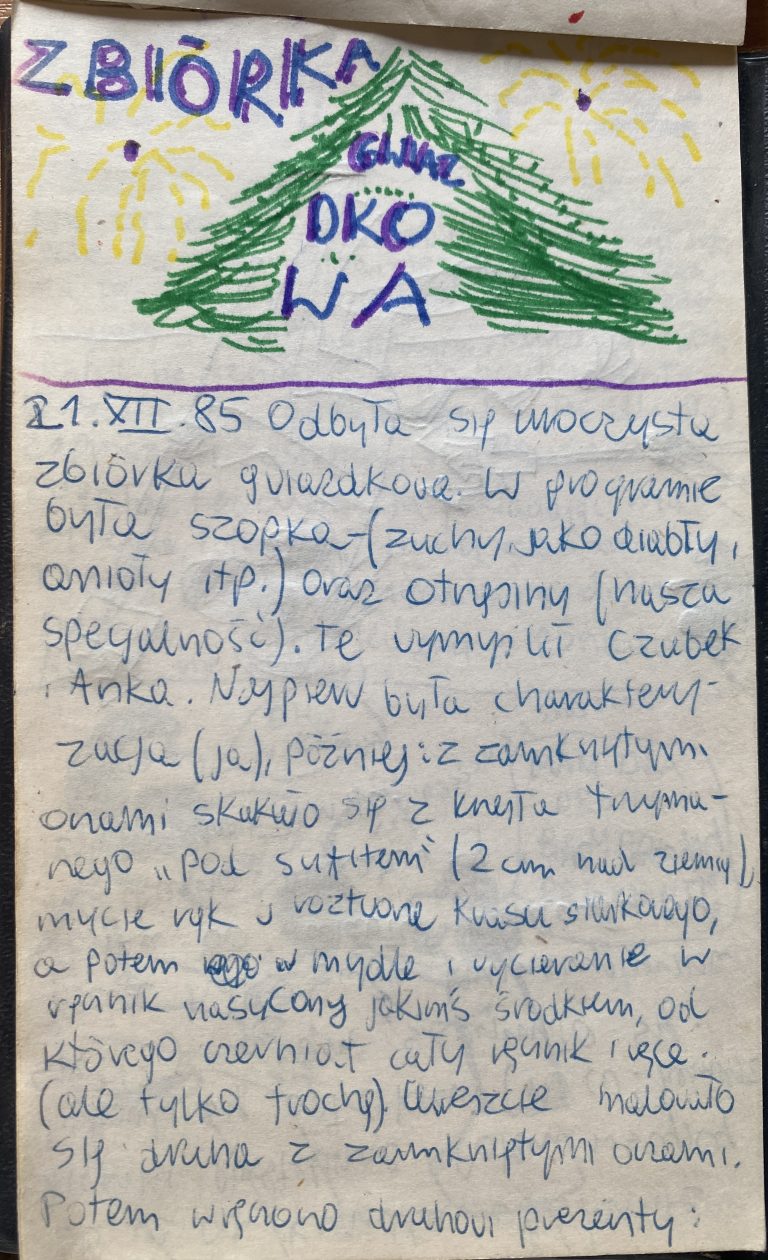 ZBIÓRKA
GWIAZ
DKO
WA
21.XII.85 Odbyła się uroczysta
zbiórka gwiazdkowa. W programie
była szopka - (zuchy, jako diabły,
anioły itp.) oraz otrzęsiny (nasza
specjalność). Te wymyślił Czubek
i Anka. Najpierw była charaktery-
zacja (ja), później: z zamkniętymi
oczami skakało się z krzesła trzyma-
nego „pod sufitem" (2 cm nad ziemią),
mycie rąk w roztworze kwasu siarkowego,
a potem w mydle i wycieranie w
ręcznik nasycony jakimś środkiem, od
którego czerniał cały ręcznik i ręce.
(ale tylko trochę). Wreszcie malowało
się druha z zamkniętymi oczami.
Potem wręczono druhowi prezenty: